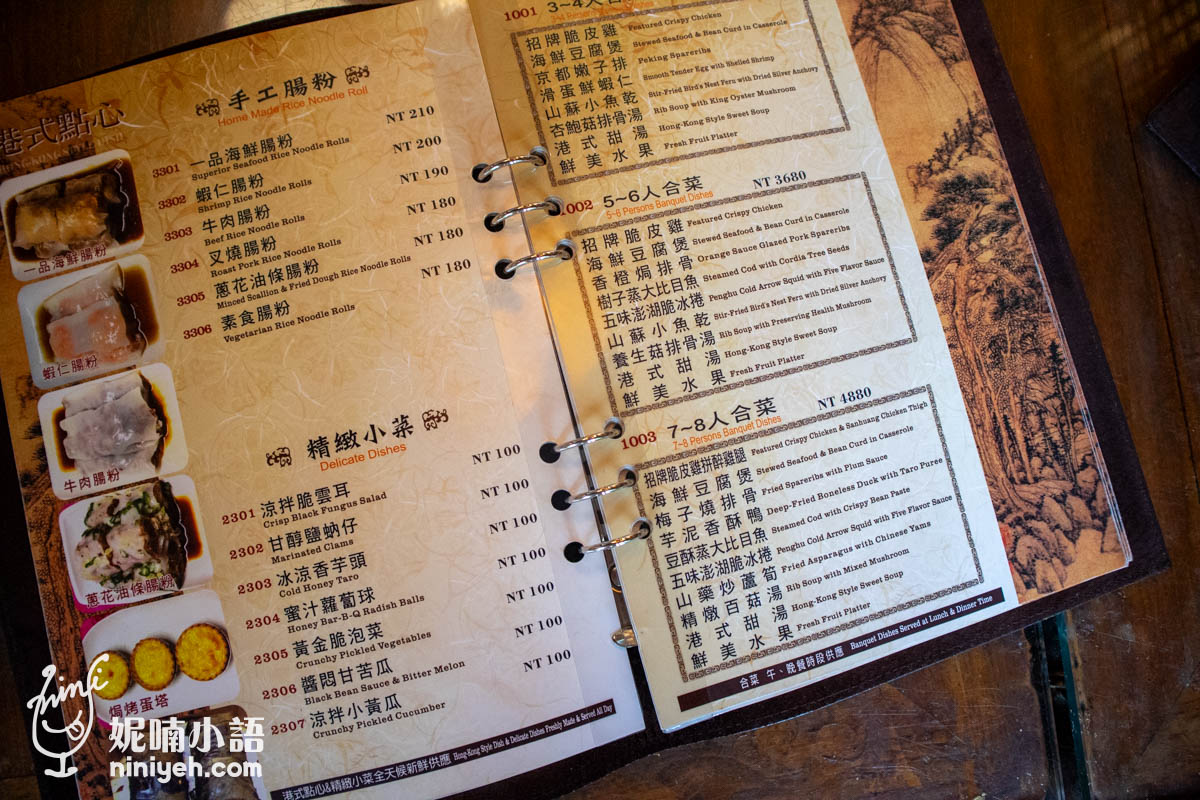 港式點心
手工腸粉
Home Made Rice Noodle Roll
3301 一品海鮮腸粉 NT 210
Superior Seafood Rice Noodle Rolls
3302 蝦仁腸粉 NT 200
Shrimp Rice Noodle Rolls
3303 牛肉腸粉 NT 190
Beef Rice Noodle Rolls
3304 叉燒腸粉 NT 180
Roast Pork Rice Noodle Rolls
3305 蔥花油條腸粉 NT 180
Minced Scallion & Fried Dough Rice Noodle Rolls
3306 素食腸粉 NT 180
Vegetarian Rice Noodle Rolls
一品海鮮腸粉
蝦仁腸粉
牛肉腸粉
蔥花油條腸粉
焗烤蛋塔
精緻小菜
Delicate Dishes
2301 涼拌脆雲耳 NT 100
Crisp Black Fungus Salad
2302 甘醇鹽蚋仔 NT 100
Marinated Clams
2303 冰涼香芋頭 NT 100
Cold Honey Taro
2304 蜜汁蘿蔔球 NT 100
Honey Bar-B-Q Radish Balls
2305 黃金脆泡菜 NT 100
Crunchy Pickled Vegetables
2306 醬悶甘苦瓜 NT 100
Black Bean Sauce & Bitter Melon
2307 涼拌小黃瓜 NT 100
Crunchy Pickled Cucumber
港式點心&精緻小菜全天候新鮮供應 Hong-Kong Style Dish & Delicate Dishes Freshly Made & Served All Day
1001 3~4人合
招牌脆皮雞 Featured Crispy Chicken
海鮮豆腐煲 Stewed Seafood & Bean Curd in Casserole
京都嫩子排 Peking Spareribs
滑蛋鮮蝦仁 Smooth Tender Egg with Shelled Shrimp
山蘇小魚乾 Stir-Fried Bird's Nest Fern with Dried Silver Anchovy
杏鮑菇排骨湯 Rib Soup with King Oyster Mushroom
港式甜湯 Hong-Kong Style Sweet Soup
鮮美水果 Fresh Fruit Platter
1002 5~6人合菜 NT 3680
5~8 Persons Banquet Dishes
招牌脆皮雞 Featured Crispy Chicken
海鮮豆腐煲 Stewed Seafood & Bean Curd in Casserole
香橙焗排骨 Orange Sauce Glazed Pork Spareribs
樹子蒸大比目魚 Steamed Cod with Cordia Tree Seeds
五味澎湖脆冰捲 Penghu Cold Arrow Squid with Five Flavor Sauce
山蘇小魚乾 Stir-Fried Bird's Nest Fern with Dried Silver Anchovy
養生菇排骨湯 Rib Soup with Preserving Health Mushroom
港式甜湯 Hong-Kong Style Sweet Soup
鮮美水果 Fresh Fruit Platter
1003 7~8人合菜 NT 4880
7~8 Persons Banquet Dishes
招牌脆皮雞拼醉雞腿 Featured Crispy Chicken & Sanhuang Chicken Thigh
海鮮豆腐煲 Stewed Seafood & Bean Curd in Casserole
梅子燒排骨 Fried Spareribs with Plum Sauce
芋泥香酥鴨 Deep-Fried Boneless Duck with Taro Puree
豆酥蒸大比目魚 Steamed Cod with Crispy Bean Paste
五味澎湖脆冰捲 Penghu Cold Arrow Squid with Five Flavor Sauce
山藥炒蘆筍 Fried Asparagus with Chinese Yams
精燉百菇湯 Rib Soup with Mixed Mushroom
港式甜湯 Hong-Kong Style Sweet Soup
鮮美水果 Fresh Fruit Platter
合菜 午、晚餐時段供應 Banquet Dishes Served at Lunch & Dinner Time
nini
妮喃小語
niniyeh.com